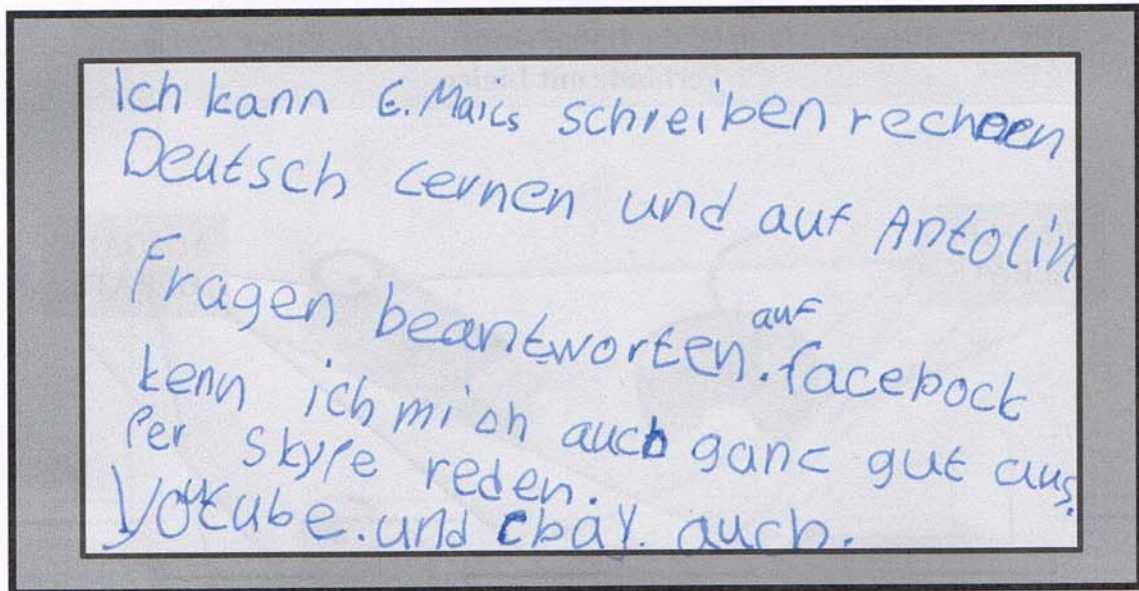 Ich kann E.Mails schreiben rechnen
Deutsch lernen und auf Antolin
Fragen beantworten. auf facebock
kenn ich mich auch ganc gut aus.
Per skype reden.
Yotube. und ebay. auch.